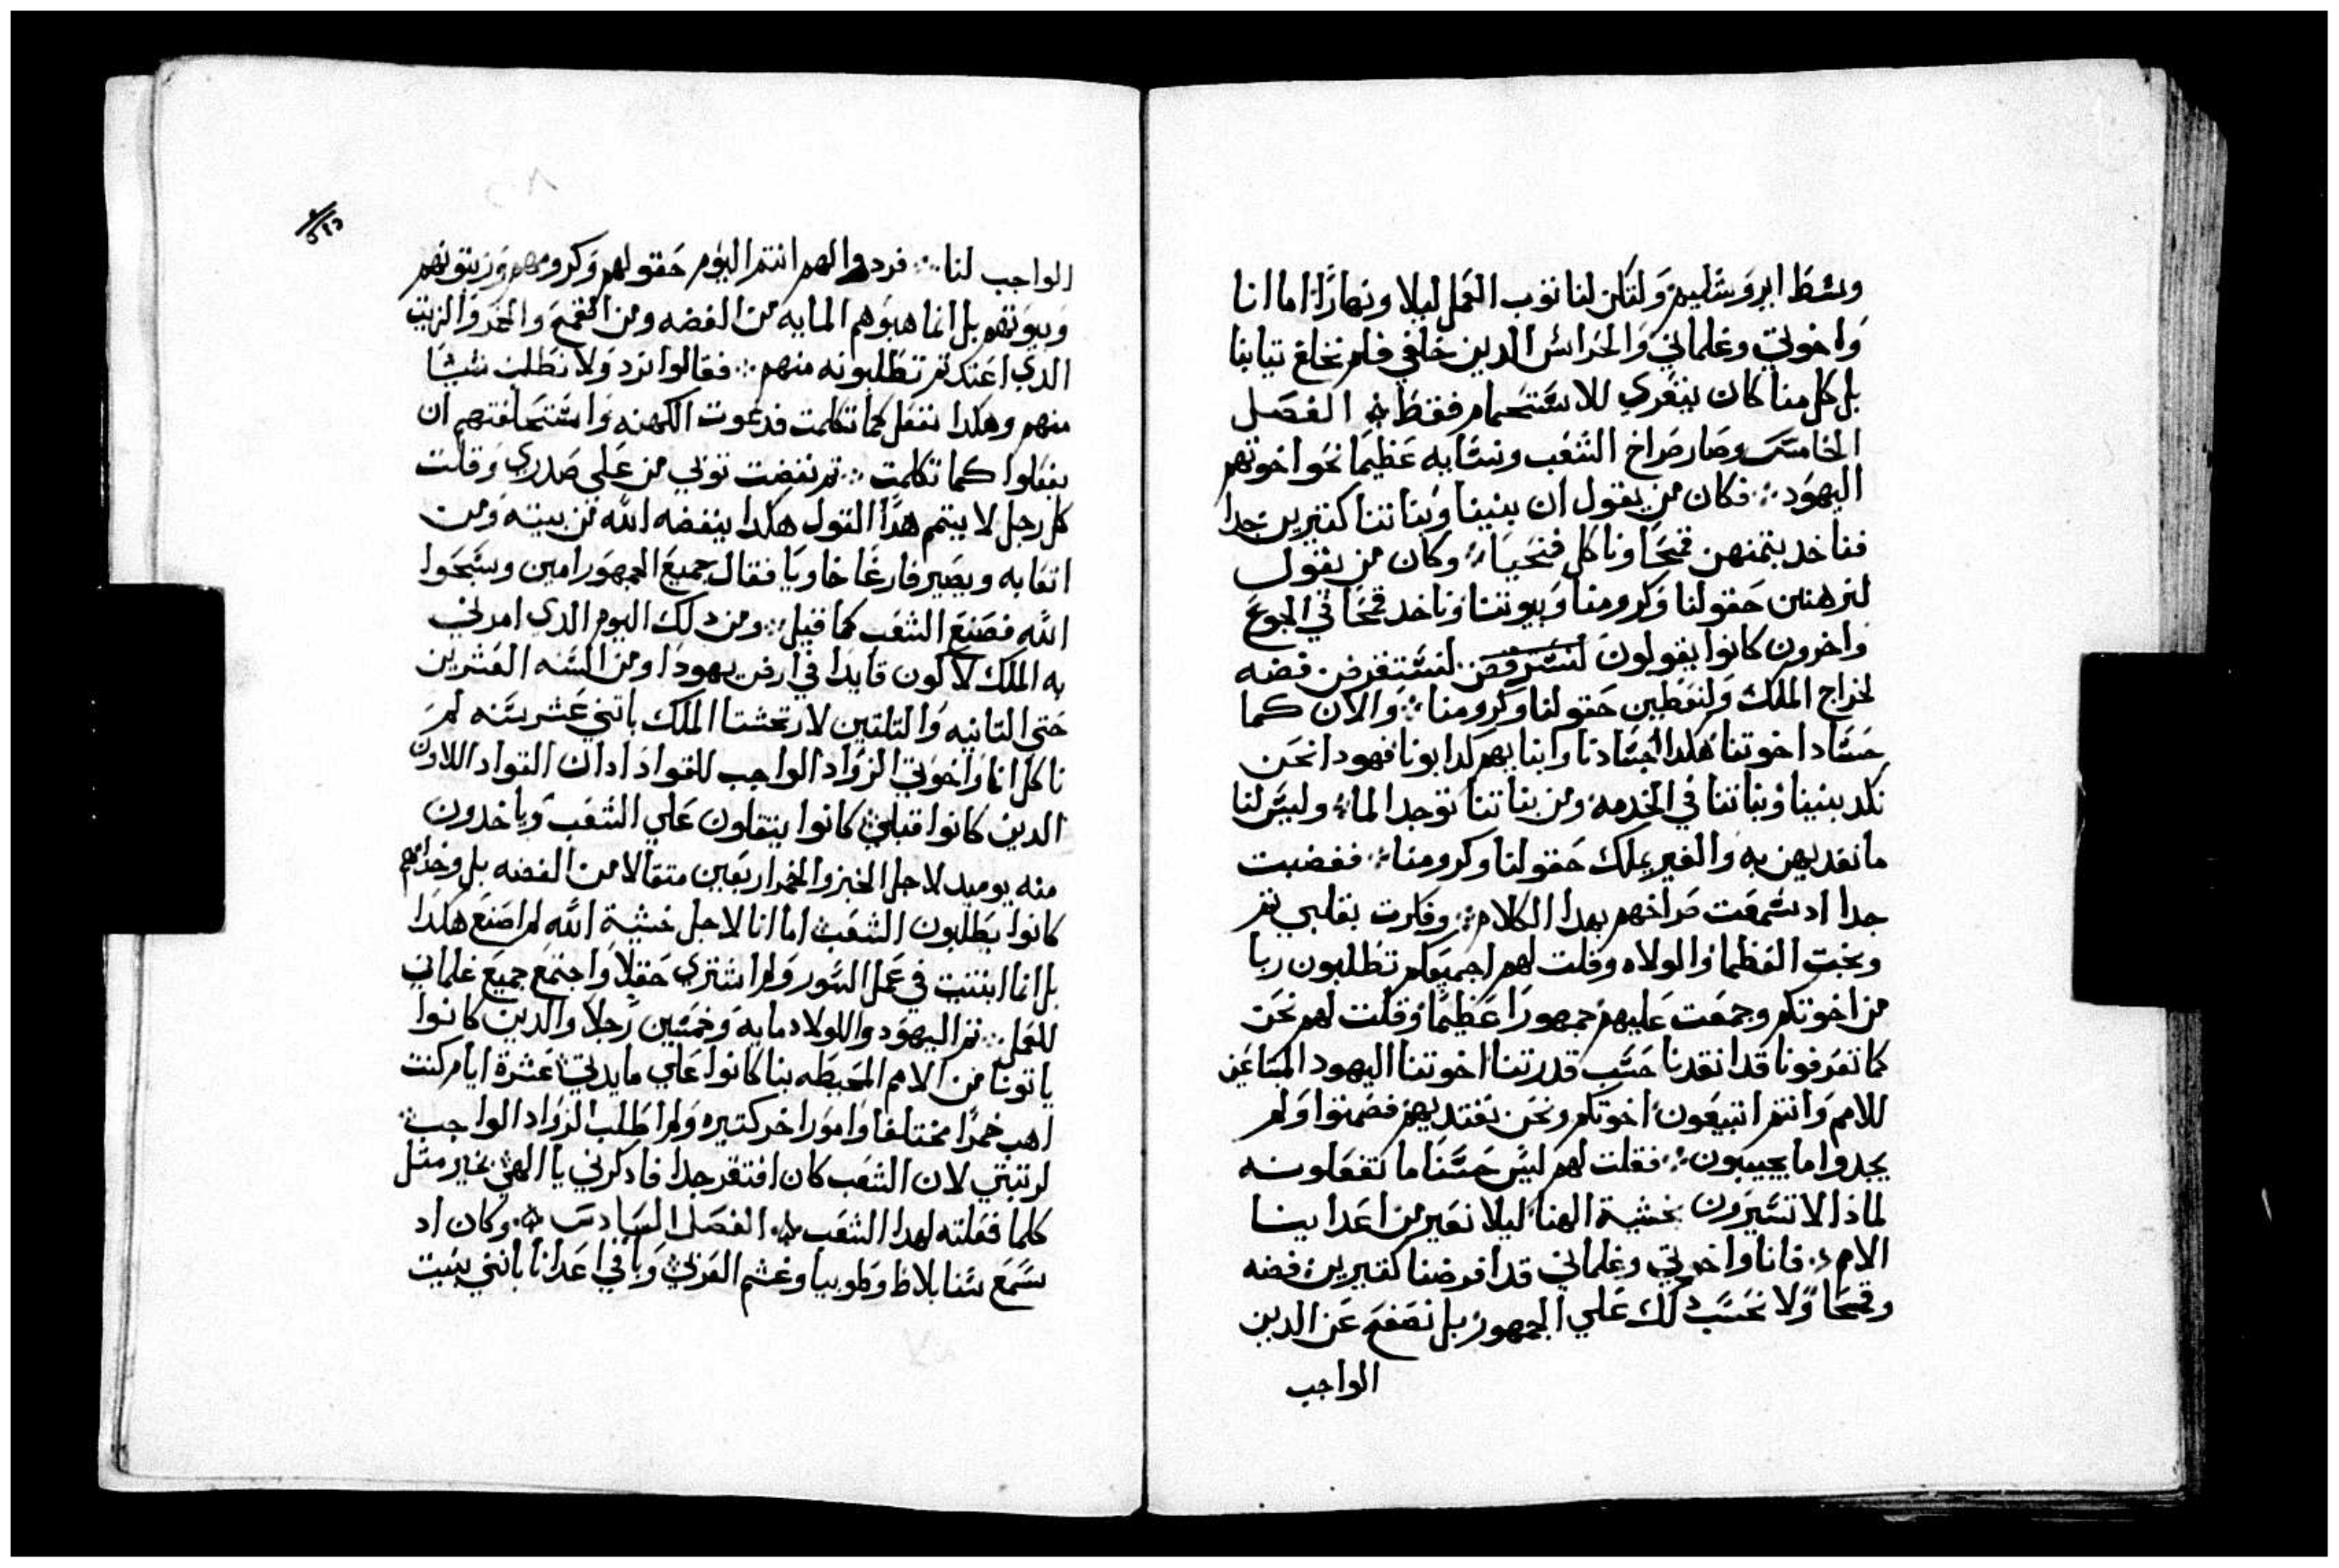 وسط ايروشليم ولتكن لنا نوب العمل ليلا ونهارًا اما انا
واخوتي وغلماني والحراس الدين خلفي فلم نخلع تيابنا
بل كل منا كان يتعري للاستحمام فقط الفصل
الخامس وصار صراخ الشعب ونسايه عظيمًا نحو اخوتهم
اليهود فكان من يقول ان بنينا وبناتنا كتيرين جدا
فناخد بتمنهن قمحًا وناكل فنحيا وكان من يقول
لنرهنن حقولنا وكرومنا وبيوتنا وناخد قمحًا في الجوع
واخرون كانوا يقولون لنستقرض فضه
لخراج الملك ولنعطين حقولنا وكرومنا والان كما
جساد اخوتنا هكدا اجسادنا وابنايهم كدا بونا فهودا نحن
نكد بنينا وبناتنا في الخدمه ومن بناتنا توجد اما وليس لنا
ما نفديهن به والغير يملك حقولنا وكرومنا فغضبت
جدا اد سمعت صراخهم بهدا الكلام وفكرت بقلبي تم
وبخت العظما والولاه وقلت لهم اجميعكم تطلبون ربا
من اخوتكم وجمعت عليهم جمهورًا عظيمًا وقلت لهم نحن
كما تعرفونا قد انقدنا حسب قدرتنا اخوتنا اليهود المباعين
للامم وانتم اتبيعون اخوتكم ونحن نفتديهم فصمتوا ولم
يجدوا ما يجيبون فقلت لهم ليس حسنًا ما تفعلونه
لماذا لا تسيرون بخشية الهنا ليلا نعير من اعداينا
الامم فانا واخوتي وغلماني قد اقرضنا كتيرين فضه
وقمحًا ولا نحسب دلك علي الجمهور بل نصفح عن الدين
الواجب
الواجب لنا فردوا لهم انتم اليوم حقولهم وكرومهم وزيتونهم
وبيوتهم بل انما هبوهم المايه من الفضه ومن القمح والخمر والزيت
الدي اعتدتم تطلبونه منهم فقالوا نرد ولا نطلب شيًا
منهم وهكدا نفعل كما تكلمت فدعوت الكهنه واستحلفتهم ان
يفعلوا كما تكلمت تم نفضت توبي من علي صدري وقلت
كل رجل لا يتم هدا القول هكدا ينفضه الله من بيته ومن
اتعابه ويصير فارغًا خاويًا فقال جميع الجمهور امين وسبحوا
الله فصنع الشعب كما قيل ومن دلك اليوم الدي امرني
به الملك لاكون قايدا في ارض يهودا ومن السنه العشرين
حتي التانيه والتلتين لارتحشتا الملك باتني عشر سنه لم
ناكل انا واخوتي الزواد الواجب للقواد اد ان القواد الاولون
الدين كانوا قبلي كانوا يتقلون علي الشعب وياخدون
منه يوميد لاجل الخبز والخمر اربعين متقالا من الفضه بل وخدامهم
كانوا يطلبون الشعب اما انا لاجل خشية الله لم اصنع هكدا
بل انما ابتنيت في عمل السور ولم اشتري حقلًا واجتمع جميع غلماني
للعمل تم اليهود والولاد مايه وخمسين رجلًا والدين كانوا
ياتونا من الامم المحيطه بنا كانوا علي مايدتي عشرة ايام كنت
اهب خمرًا مختلفا وامورا اخر كتيره ولم اطلب الزواد الواجب
لرتبتي لان الشعب كان افتقر جدا فادكرني يا الهي بخير متل
كلما فعلته لهدا الشعب الفصل السادس وكان اد
سمع سنابلاط وطوبيا وغشم العربي وباقي اعدانا بانني بنيت